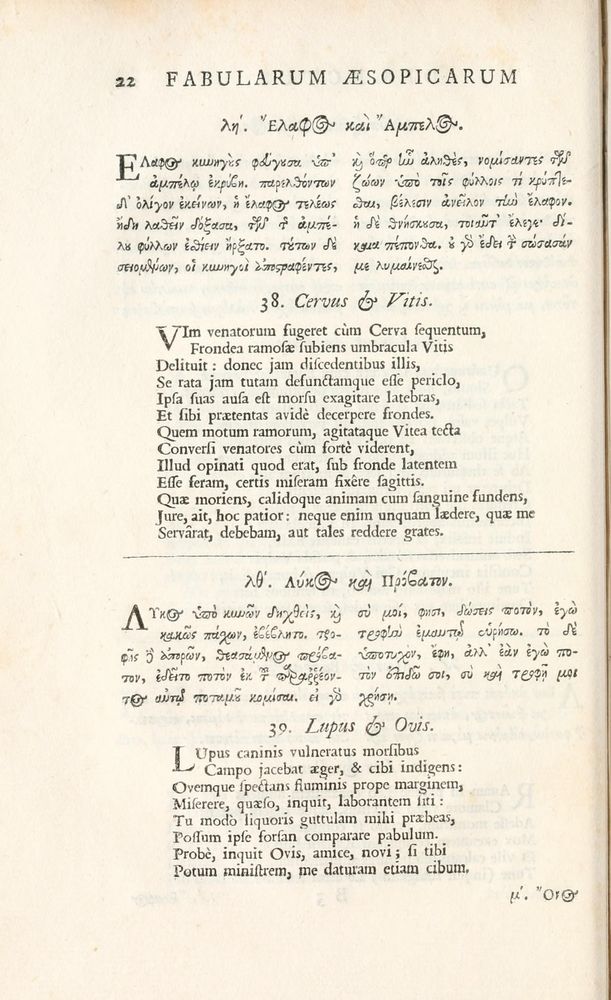 22 FABULARUM ÆSOPICARUM
λή. Ἔλαφος καὶ Ἄμπελος.
ἜΛαφος κυνηγοὺς φεύγουσα ὑπ'
ἀμπέλῳ ἐκρύβη. παρελθόντων
δ' ὀλίγον ἐκείνων, ἡ ἔλαφος τελέως
ἤδη λαθεῖν δόξασα, τῶν τῆς ἀμπέ-
λου φύλλων ἐσθίειν ἤρξατο. τούτων δὲ
σειομένων, οἱ κυνηγοὶ ἐπιστραφέντες,
καὶ ὅπερ ἦν ἀληθὲς, νομίσαντες τῶν
ζώων ὑπὸ τοῖς φύλλοις τὶ κρύπτε-
σθαι, βέλεσιν ἀνεῖλον τὴν ἔλαφον.
ἡ δὲ θνήσκουσα, τοιαῦτ' ἔλεγε· δί-
καια πέπονθα. οὐ γὰρ ἔδει τὴν σώσασάν
με λυμαίνεσθαι.
38. Cervus & Vitis.
VIm venatorum fugeret cùm Cerva sequentum,
Frondea ramosæ subiens umbracula Vitis
Delituit: donec jam discedentibus illis,
Se rata jam tutam defunctamque esse periclo,
Ipsa suas ausa est morsu exagitare latebras,
Et sibi prætentas avidè decerpere frondes.
Quem motum ramorum, agitataque Vitea tecta
Conversi venatores cùm fortè viderent,
Illud opinati quod erat, sub fronde latentem
Esse feram, certis miseram fixêre sagittis.
Quæ moriens, calidoque animam cum sanguine fundens,
Jure, ait, hoc patior: neque enim unquam lædere, quæ me
Servârat, debebam, aut tales reddere grates.
λθ'. Λύκος καὶ Πρόβατον.
ΛΥκος ὑπὸ κυνῶν δηχθεὶς, καὶ
κακῶς πάχων, ἐβέβλητο. τρο-
φῆς δὲ ἀπορῶν, θεασάμενος πρόβα-
τον, ἐδεῖτο ποτὸν ἐκ τοῦ παραῤῥέον-
τος αὐτῷ ποταμοῦ κομίσαι. εἰ γὰρ
σύ μοι, φησι, δώσεις ποτὸν, ἐγὼ
τροφὴν ἐμαυτῷ εὑρήσω. τὸ δὲ
ὑποτυχὸν, ἔφη, ἀλλ' ἐὰν ἐγὼ πο-
τὸν ἐπιδῶ σοι, σὺ καὶ τροφῇ μοι
χρήσῃ.
39. Lupus & Ovis.
LUpus caninis vulneratus morsibus
Campo jacebat æger, & cibi indigens:
Ovemque spectans fluminis prope marginem,
Miserere, quæso, inquit, laborantem siti:
Tu modò liquoris guttulam mihi præbeas,
Possum ipse forsan comparare pabulum.
Probè, inquit Ovis, amice, novi; si tibi
Potum ministrem, me daturam etiam cibum.
μ'. Ὄνος